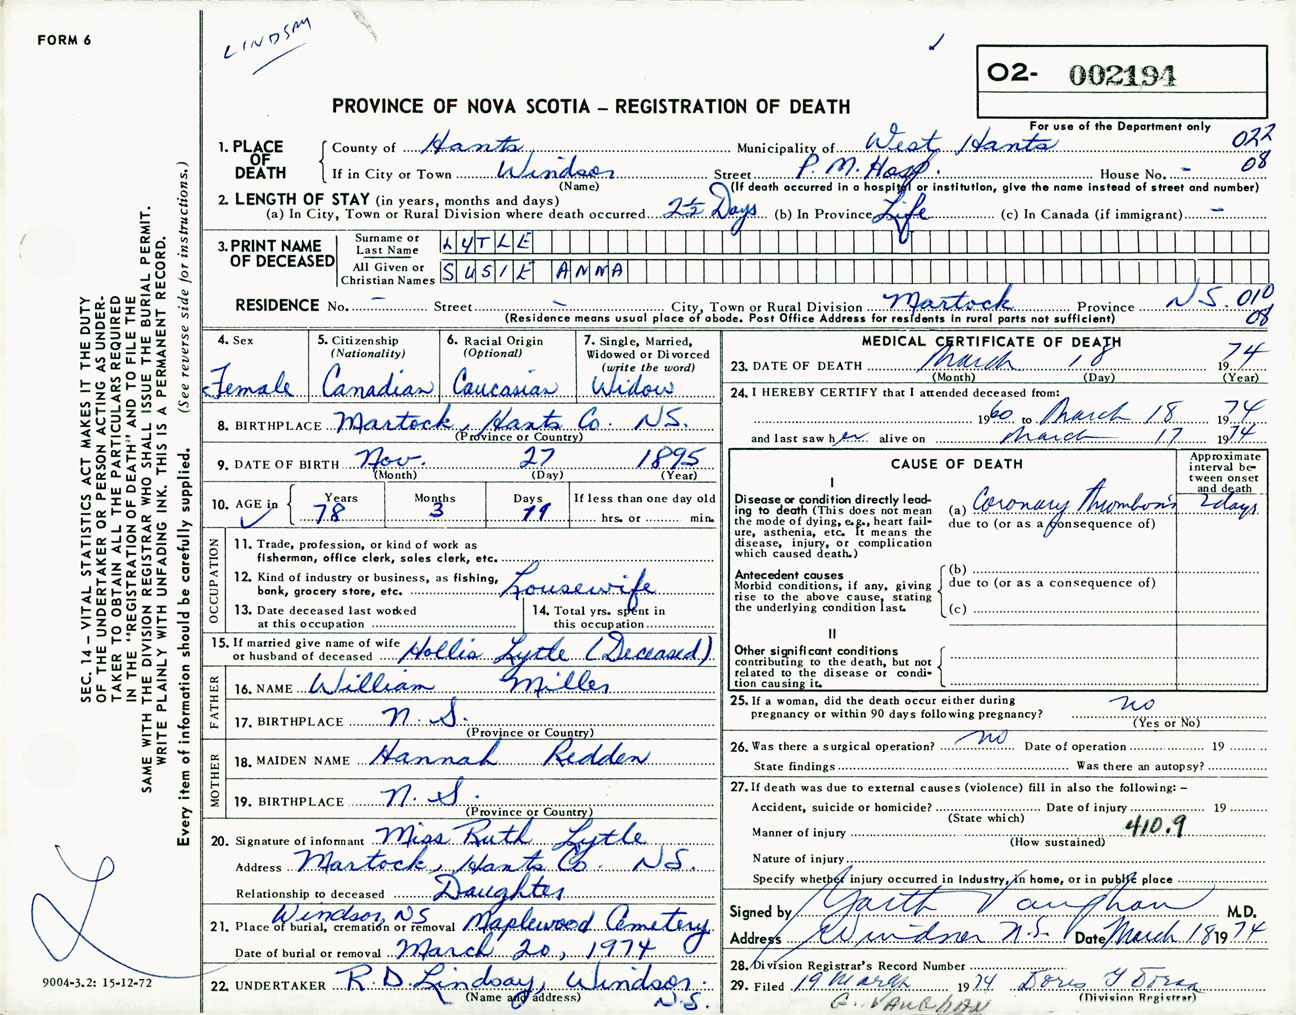 FORM 6
LINDSAY
O2- 002194
PROVINCE OF NOVA SCOTIA – REGISTRATION OF DEATH
For use of the Department only
1. PLACE OF DEATH
County of Hants Municipality of West Hants 022
If in City or Town Windsor Street P. M. Hosp. House No. - 08
(Name) (If death occurred in a hospital or institution, give the name instead of street and number)
2. LENGTH OF STAY (in years, months and days)
(a) In City, Town or Rural Division where death occurred 2½ Days (b) In Province Life (c) In Canada (if immigrant) -
3. PRINT NAME OF DECEASED
Surname or Last Name LYTLE
All Given or Christian Names SUSIE ANNA
RESIDENCE No. - Street - City, Town or Rural Division Martock Province N.S. 010
(Residence means usual place of abode. Post Office Address for residents in rural parts not sufficient) 08
4. Sex
Female
5. Citizenship
(Nationality)
Canadian
6. Racial Origin
(Optional)
Caucasian
7. Single, Married,
Widowed or Divorced
(write the word)
Widow
8. BIRTHPLACE Martock, Hants Co. N.S.
(Province or Country)
9. DATE OF BIRTH Nov. 27 1895
(Month) (Day) (Year)
10. AGE in Years Months Days If less than one day old
78 3 19 hrs. or min.
OCCUPATION
11. Trade, profession, or kind of work as
fisherman, office clerk, sales clerk, etc.
12. Kind of industry or business, as fishing,
bank, grocery store, etc. Housewife
13. Date deceased last worked
at this occupation
14. Total yrs. spent in
this occupation
15. If married give name of wife
or husband of deceased Hollis Lytle (Deceased)
FATHER
16. NAME William Miller
17. BIRTHPLACE N. S.
(Province or Country)
MOTHER
18. MAIDEN NAME Hannah Redden
19. BIRTHPLACE N. S.
(Province or Country)
20. Signature of informant Miss Ruth Lytle
Address Martock, Hants Co. N.S.
Relationship to deceased Daughter
Windsor, NS
21. Place of burial, cremation or removal Maplewood Cemetery
Date of burial or removal March 20, 1974
22. UNDERTAKER R.D. Lindsay, Windsor.
(Name and address) N.S.
MEDICAL CERTIFICATE OF DEATH
23. DATE OF DEATH March 18 1974
(Month) (Day) (Year)
24. I HEREBY CERTIFY that I attended deceased from:
1960 to March 18 1974
and last saw her alive on March 17 1974
CAUSE OF DEATH
Approximate interval between onset and death
I
Disease or condition directly lead-
ing to death (This does not mean
the mode of dying, e.g., heart fail-
ure, asthenia, etc. It means the
disease, injury, or complication
which caused death.)
(a) Coronary thrombosis 2 days
due to (or as a consequence of)
Antecedent causes
Morbid conditions, if any, giving
rise to the above cause, stating
the underlying condition last.
(b)
due to (or as a consequence of)
(c)
II
Other significant conditions
contributing to the death, but not
related to the disease or condi-
tion causing it.
25. If a woman, did the death occur either during
pregnancy or within 90 days following pregnancy? no
(Yes or No)
26. Was there a surgical operation? no Date of operation 19
State findings Was there an autopsy?
27. If death was due to external causes (violence) fill in also the following: –
Accident, suicide or homicide? Date of injury 19
(State which)
410.9
Manner of injury
(How sustained)
Nature of injury
Specify whether injury occurred in Industry, in home, or in public place
Signed by Garth Vaughan M.D.
Address Windsor N.S. Date March 18 1974
28. Division Registrar's Record Number
29. Filed 19 March 1974 Doris
(Division Registrar)
G. VAUGHAN
SEC. 14 – VITAL STATISTICS ACT MAKES IT THE DUTY
OF THE UNDERTAKER OR PERSON ACTING AS UNDER-
TAKER TO OBTAIN ALL THE PARTICULARS REQUIRED
IN THE "REGISTRATION OF DEATH" AND TO FILE THE
SAME WITH THE DIVISION REGISTRAR WHO SHALL ISSUE THE BURIAL PERMIT.
WRITE PLAINLY WITH UNFADING INK. THIS IS A PERMANENT RECORD.
Every item of information should be carefully supplied. (See reverse side for instructions.)
9004-3.2: 15-12-72